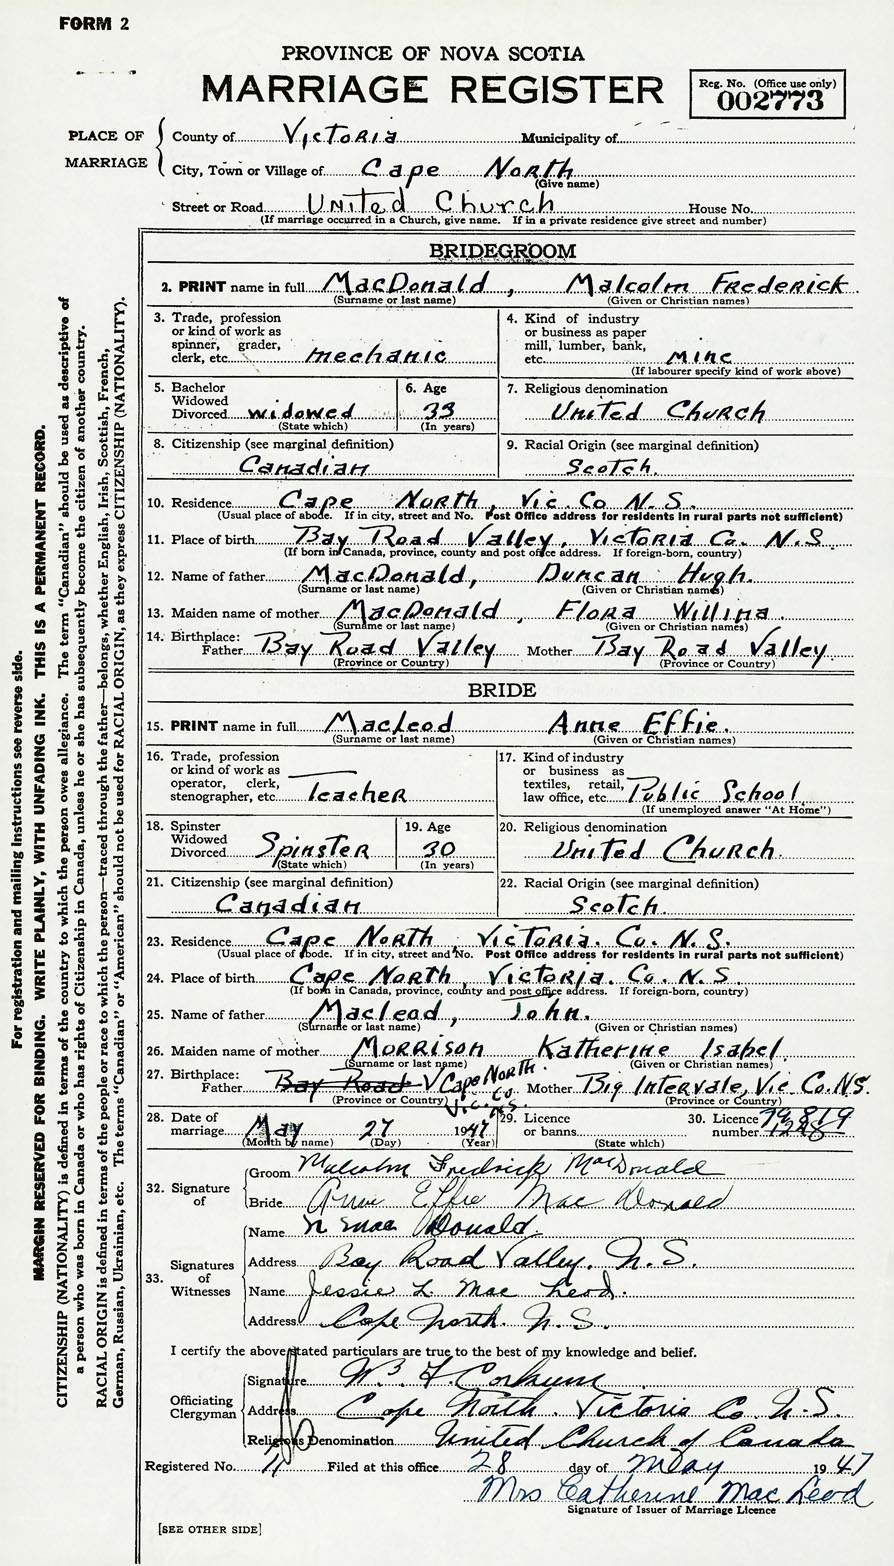 FORM 2
PROVINCE OF NOVA SCOTIA
MARRIAGE REGISTER
Reg. No. (Office use only)
002773
PLACE OF MARRIAGE
County of Victoria Municipality of
City, Town or Village of Cape North
(Give name)
Street or Road United Church House No.
(If marriage occurred in a Church, give name. If in a private residence give street and number)
BRIDEGROOM
2. PRINT name in full MacDonald, Malcolm Frederick.
(Surname or last name) (Given or Christian names)
3. Trade, profession or kind of work as spinner, grader, clerk, etc. mechanic
4. Kind of industry or business as paper mill, lumber, bank, etc. mine
(If labourer specify kind of work above)
5. Bachelor Widowed Divorced widowed
(State which)
6. Age 33
(In years)
7. Religious denomination
United Church
8. Citizenship (see marginal definition)
Canadian
9. Racial Origin (see marginal definition)
Scotch.
10. Residence Cape North, Vic. Co N.S.
(Usual place of abode. If in city, street and No. Post Office address for residents in rural parts not sufficient)
11. Place of birth Bay Road Valley, Victoria Co. N.S
(If born in Canada, province, county and post office address. If foreign-born, country)
12. Name of father MacDonald, Duncan Hugh.
(Surname or last name) (Given or Christian names)
13. Maiden name of mother MacDonald, Flora Willina.
(Surname or last name) (Given or Christian names)
14. Birthplace: Father Bay Road Valley Mother Bay Road Valley
(Province or Country) (Province or Country)
BRIDE
15. PRINT name in full MacLeod Anne Effie.
(Surname or last name) (Given or Christian names)
16. Trade, profession or kind of work as operator, clerk, stenographer, etc. Teacher
17. Kind of industry or business as textiles, retail, law office, etc. Public School
(If unemployed answer "At Home")
18. Spinster Widowed Divorced Spinster
(State which)
19. Age 30
(In years)
20. Religious denomination
United Church.
21. Citizenship (see marginal definition)
Canadian
22. Racial Origin (see marginal definition)
Scotch.
23. Residence Cape North, Victoria. Co. N.S.
(Usual place of abode. If in city, street and No. Post Office address for residents in rural parts not sufficient)
24. Place of birth Cape North, Victoria. Co. N.S
(If born in Canada, province, county and post office address. If foreign-born, country)
25. Name of father Macleod, John.
(Surname or last name) (Given or Christian names)
26. Maiden name of mother Morrison Katherine Isabel.
(Surname or last name) (Given or Christian names)
27. Birthplace: Father Bay Road V Cape North. Vic. Co N.S. Mother Big Intervale, Vic. Co. N.S.
(Province or Country) (Province or Country)
28. Date of marriage May 27 1947
(Month by name) (Day) (Year)
29. Licence or banns
(State which)
30. Licence number
32. Signature of
Groom Malcolm Fredrick MacDonald
Bride Anne Effie Mac Donald
33. Signatures of Witnesses
Name Mac Donald.
Address Bay Road Valley. N.S.
Name Jessie L. Mac Leod.
Address Cape North N.S.
I certify the above stated particulars are true to the best of my knowledge and belief.
Officiating Clergyman
Signature Corkum
Address Cape North. Victoria Co. N.S.
Religious Denomination United Church of Canada
Registered No. 11 Filed at this office 28 day of May 1947
Mrs Catherine Mac Leod
Signature of Issuer of Marriage Licence
[SEE OTHER SIDE]
For registration and mailing instructions see reverse side.
MARGIN RESERVED FOR BINDING. WRITE PLAINLY, WITH UNFADING INK. THIS IS A PERMANENT RECORD.
CITIZENSHIP (NATIONALITY) is defined in terms of the country to which the person owes allegiance. The term "Canadian" should be used as descriptive of
a person who was born in Canada or who has rights of Citizenship in Canada, unless he or she has subsequently become the citizen of another country.
RACIAL ORIGIN is defined in terms of the people or race to which the person—traced through the father—belongs, whether English, Irish, Scottish, French,
German, Russian, Ukrainian, etc. The terms "Canadian" or "American" should not be used for RACIAL ORIGIN, as they express CITIZENSHIP (NATIONALITY).